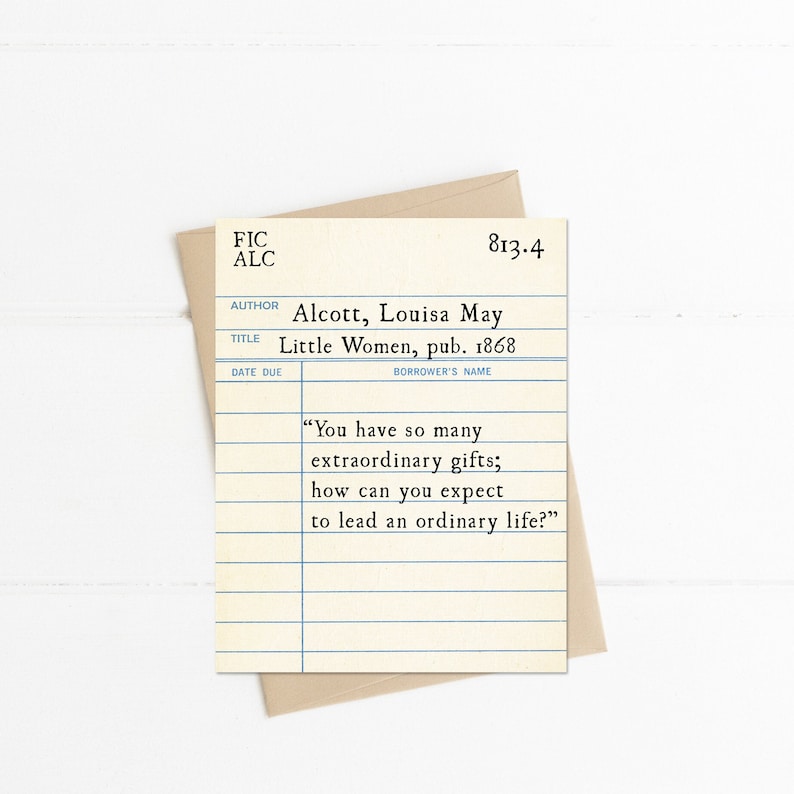 FIC
ALC
813.4
AUTHOR Alcott, Louisa May
TITLE Little Women, pub. 1868
DATE DUE BORROWER'S NAME
“You have so many
extraordinary gifts;
how can you expect
to lead an ordinary life?”